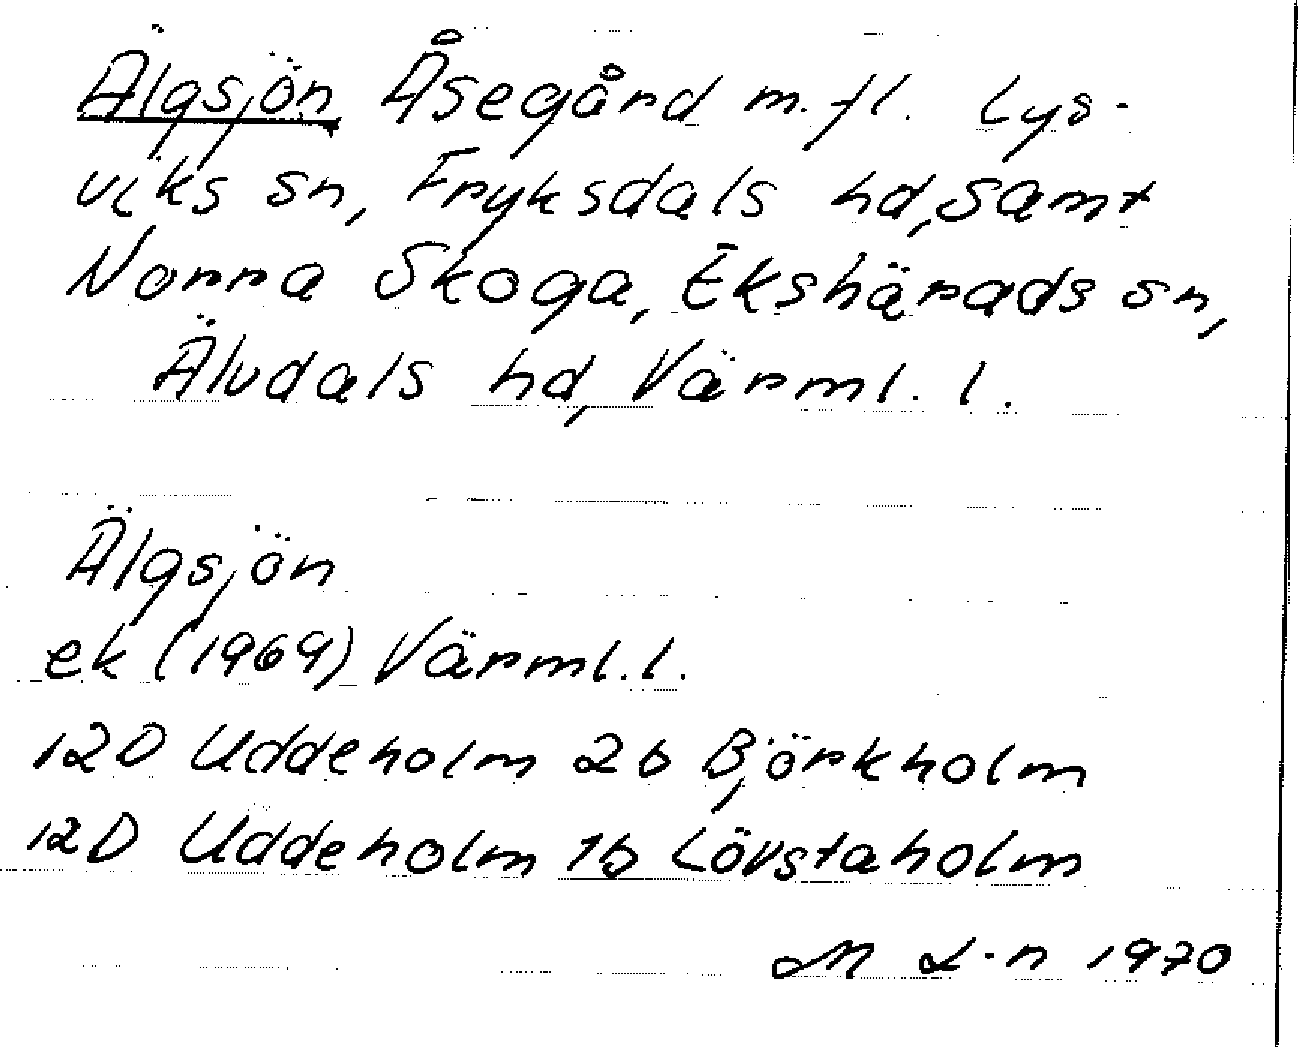 Älgsjön Åsegård m.fl. Lys-
viks sn, Fryksdals hd, samt
Norra Skoga, Ekshärads sn,
Älvdals hd, Värml. l.
Älgsjön
ek (1969) Värml. l.
12D Uddeholm 2b Björkholm
12D Uddeholm 1b Lövstaholm
M L-n 1970